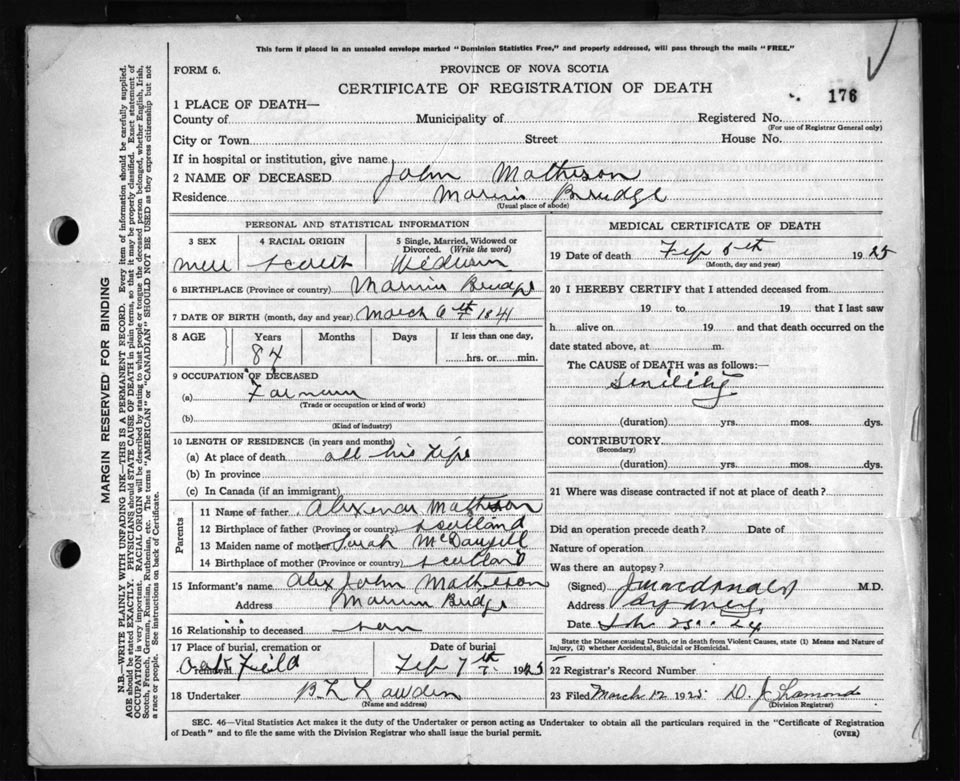 This form if placed in an unsealed envelope marked "Dominion Statistics Free," and properly addressed, will pass through the mails "FREE."
FORM 6.
PROVINCE OF NOVA SCOTIA
CERTIFICATE OF REGISTRATION OF DEATH
176
1 PLACE OF DEATH—
County of Municipality of Registered No.
(For use of Registrar General only)
City or Town Street House No.
If in hospital or institution, give name
2 NAME OF DECEASED John Matheson
Residence Marion Bridge
(Usual place of abode)
PERSONAL AND STATISTICAL INFORMATION
3 SEX
4 RACIAL ORIGIN
5 Single, Married, Widowed or Divorced. (Write the word)
6 BIRTHPLACE (Province or country) Marion Bridge
7 DATE OF BIRTH (month, day and year) March 6th 1841
8 AGE Years Months Days If less than one day,
84 hrs. or min.
9 OCCUPATION OF DECEASED
(a)
(Trade or occupation or kind of work)
(b)
(Kind of industry)
10 LENGTH OF RESIDENCE (in years and months)
(a) At place of death all his life
(b) In province
(c) In Canada (if an immigrant)
Parents
11 Name of father Matheson
12 Birthplace of father (Province or country) Scotland
13 Maiden name of mother Sarah
14 Birthplace of mother (Province or country) Scotland
15 Informant's name Alex John Matheson
Address Marion Bridge
16 Relationship to deceased son
17 Place of burial, cremation or removal Date of burial
Oak Field Feb 7th 1925
18 Undertaker
(Name and address)
MEDICAL CERTIFICATE OF DEATH
19 Date of death Feb 5th 1925
(Month, day and year)
20 I HEREBY CERTIFY that I attended deceased from
19 to 19 that I last saw
h alive on 19 and that death occurred on the
date stated above, at m.
The CAUSE of DEATH was as follows:—
Senility
(duration) yrs. mos. dys.
CONTRIBUTORY
(Secondary)
(duration) yrs. mos. dys.
21 Where was disease contracted if not at place of death?
Did an operation precede death? Date of
Nature of operation
Was there an autopsy?
(Signed) J Macdonald M.D.
Address Sydney
Date
State the Disease causing Death, or in death from Violent Causes, state (1) Means and Nature of Injury, (2) whether Accidental, Suicidal or Homicidal.
22 Registrar's Record Number
23 Filed March 12 1925 D. J. Lamond
(Division Registrar)
SEC. 46—Vital Statistics Act makes it the duty of the Undertaker or person acting as Undertaker to obtain all the particulars required in the "Certificate of Registration
of Death" and to file the same with the Division Registrar who shall issue the burial permit.
(OVER)
MARGIN RESERVED FOR BINDING
N.B.—WRITE PLAINLY WITH UNFADING INK—THIS IS A PERMANENT RECORD. Every item of information should be carefully supplied.
AGE should be stated EXACTLY. PHYSICIANS should STATE CAUSE OF DEATH in plain terms, so that it may be properly classified. Exact statement of
OCCUPATION is very important. RACIAL ORIGIN will be described by stating to what people or tongue the deceased person belonged, whether English, Irish,
Scotch, French, German, Russian, Ruthenian, etc. The terms "AMERICAN" or "CANADIAN" SHOULD NOT BE USED as they express citizenship but not
a race or people. See instructions on back of Certificate.